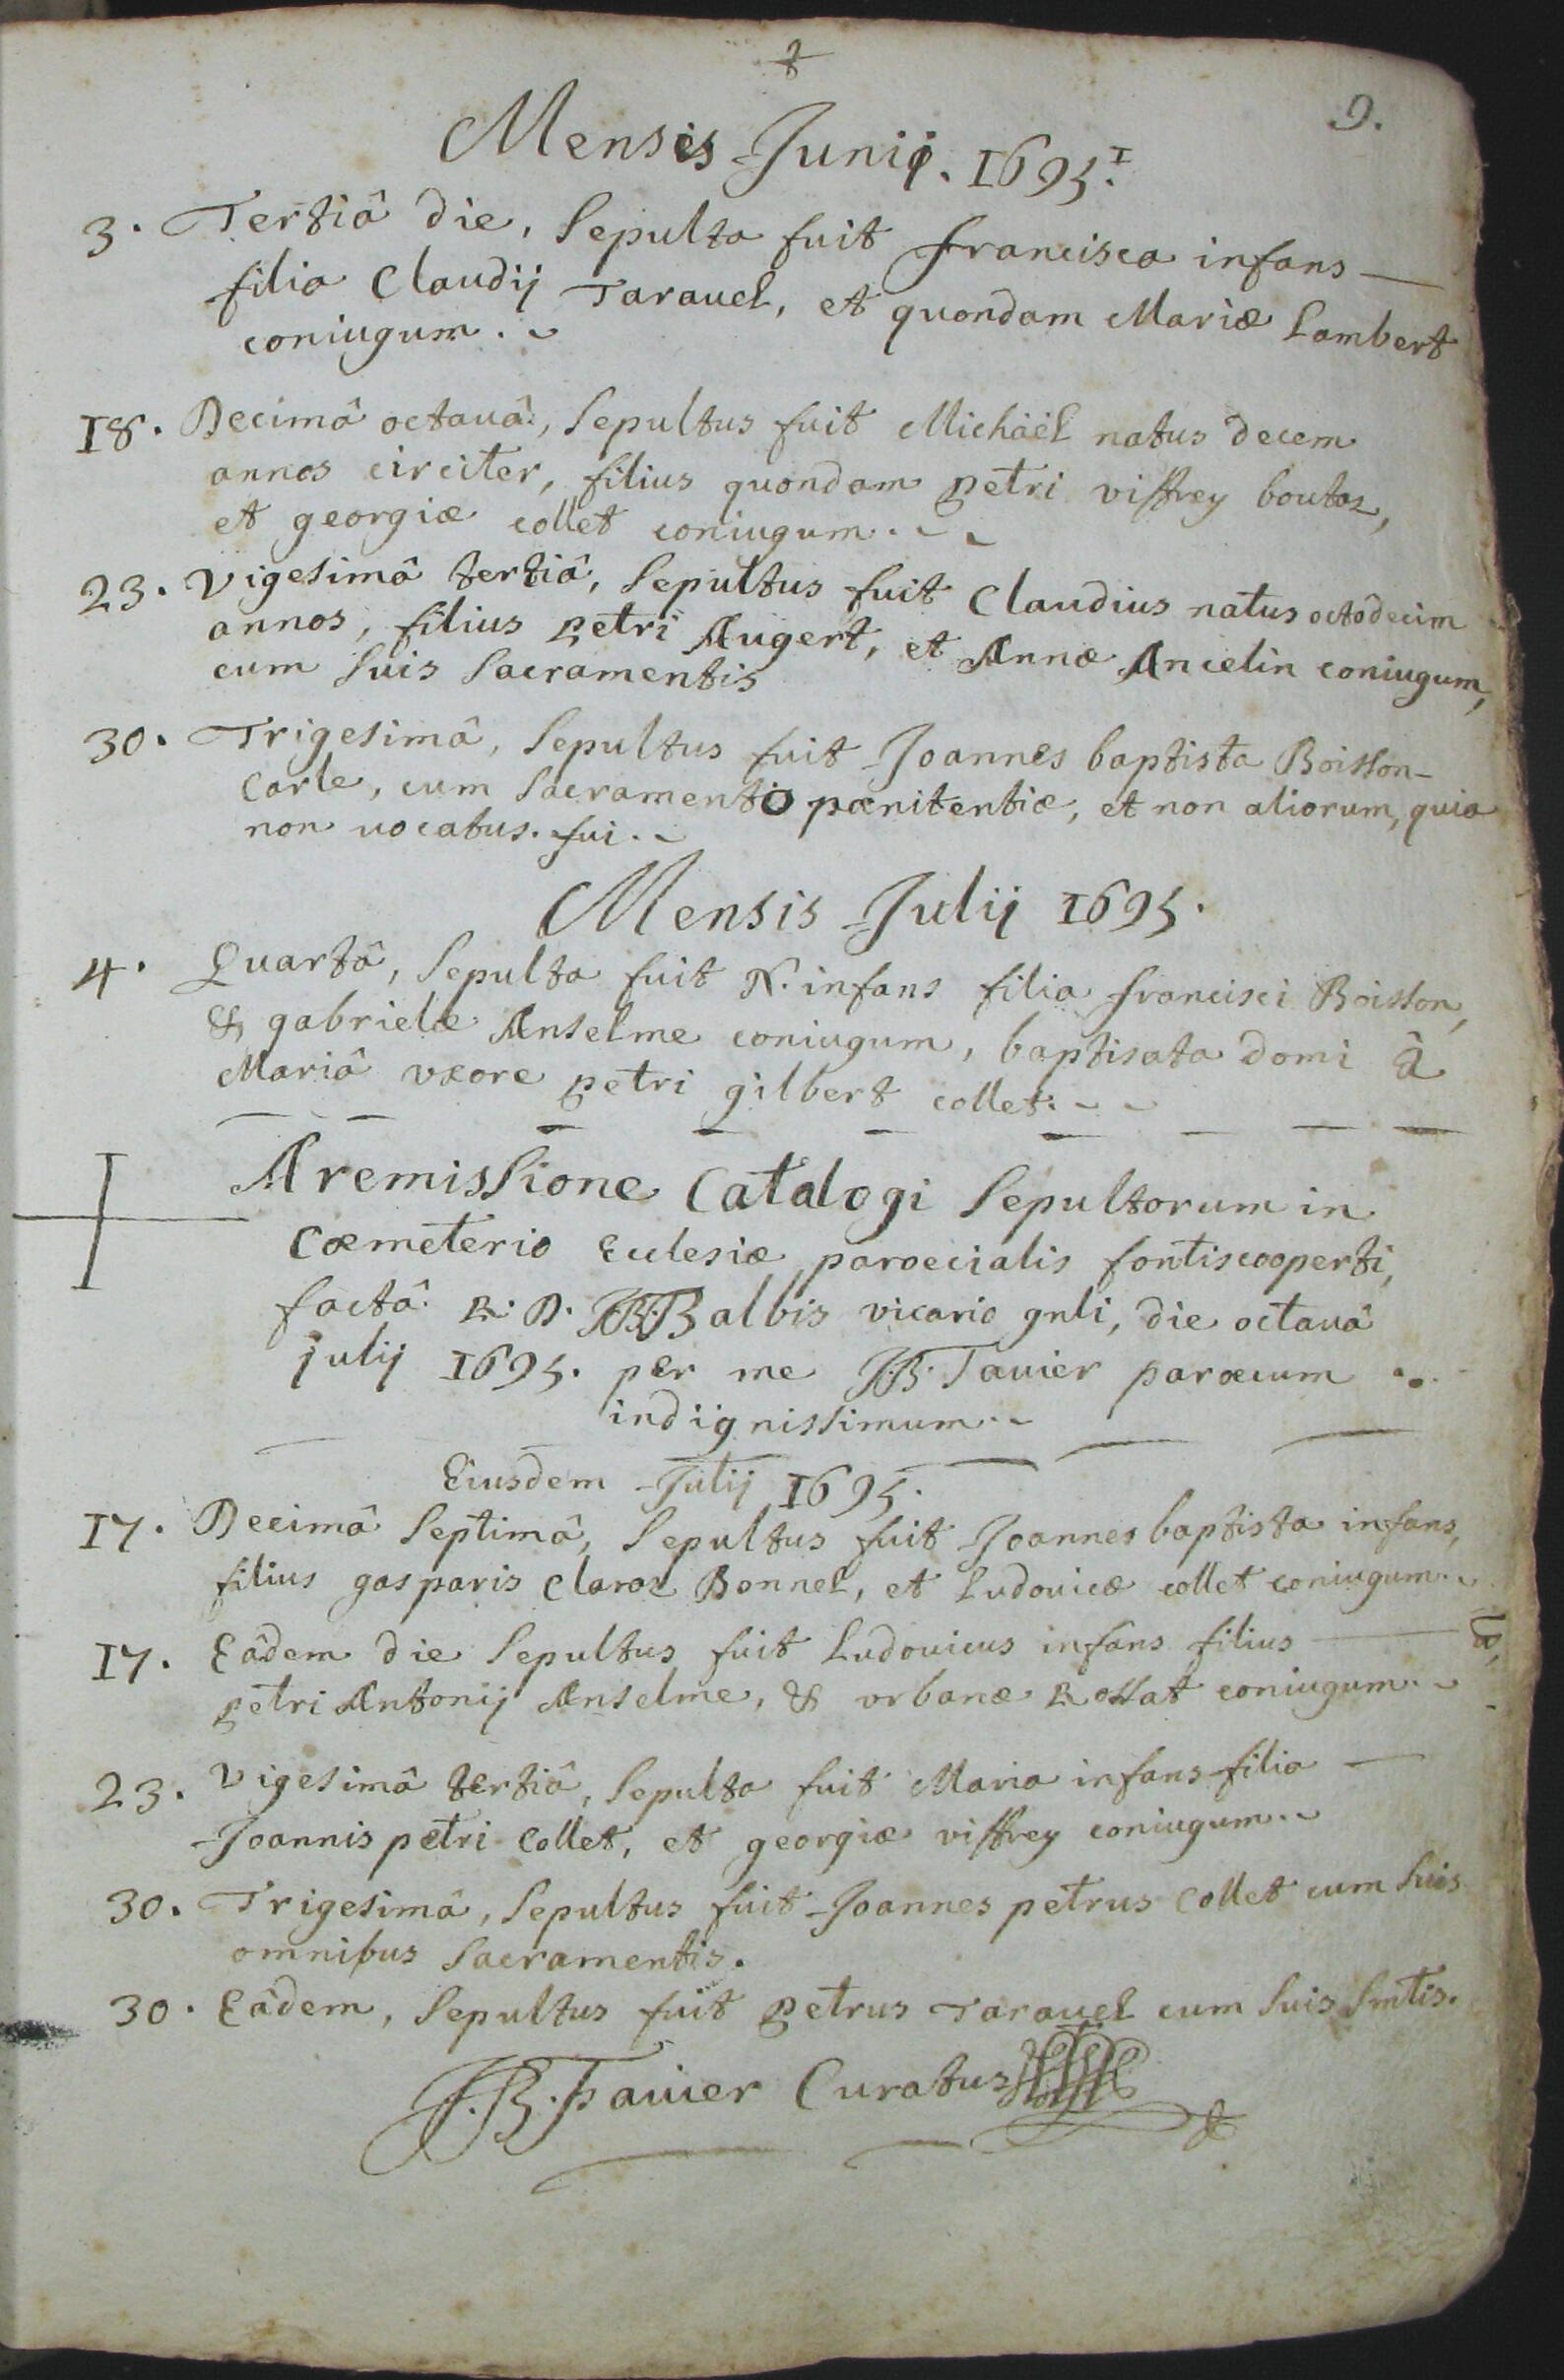 9.
Mensis Junij. 1695.
3. Tertiâ die, Sepulta fuit francisca infans
filia Claudij Tarauel, et quondam Mariæ Lambert
coniugum.
18. Decimâ octauâ, Sepultus fuit Michäel natus decem
annos circiter, filius quondam petri viffrey boutoz,
et georgiæ collet coniugum.
23. Vigesimâ tertiâ, Sepultus fuit Claudius natus octodecim
annos, filius petri Augert, et Annæ Ancelin coniugum,
cum suis Sacramentis
30. Trigesimâ, Sepultus fuit Joannes baptista Boisson-
Carle, cum Sacramento pœnitentiæ, et non aliorum, quia
non uocatus. fui.
Mensis Julij 1695.
4. Quartâ, Sepulta fuit N. infans filia francisci Boisson,
& gabrielæ Anselme coniugum, baptisata domi â
Mariâ vxore petri gilbert collet.
A remissione Catalogi Sepultorum in
Cœmeterio Ecclesiæ parœcialis fontiscooperti,
factâ R. D. J.B. Balbis vicario gnli, die octauâ
julij 1695. per me J.B. Tauier parœcum
indignissimum.
Eiusdem Julij 1695.
17. Decimâ Septimâ, Sepultus fuit Joannes baptista infans,
filius gasparis Claroz Bonnel, et Ludouicæ collet coniugum.
17. Eâdem die Sepultus fuit Ludouicus infans filius
petri Antonij Anselme, & vrbanæ Rossat coniugum.
23. Vigesimâ tertiâ, Sepulta fuit Maria infans filia
Joannis petri Collet, et georgiæ viffrey coniugum.
30. Trigesimâ, Sepultus fuit Joannes petrus Collet cum suis
omnibus Sacramentis.
30. Eâdem, Sepultus fuit petrus Tarauel cum suis Smtis.
J.B. Tauier Curatus